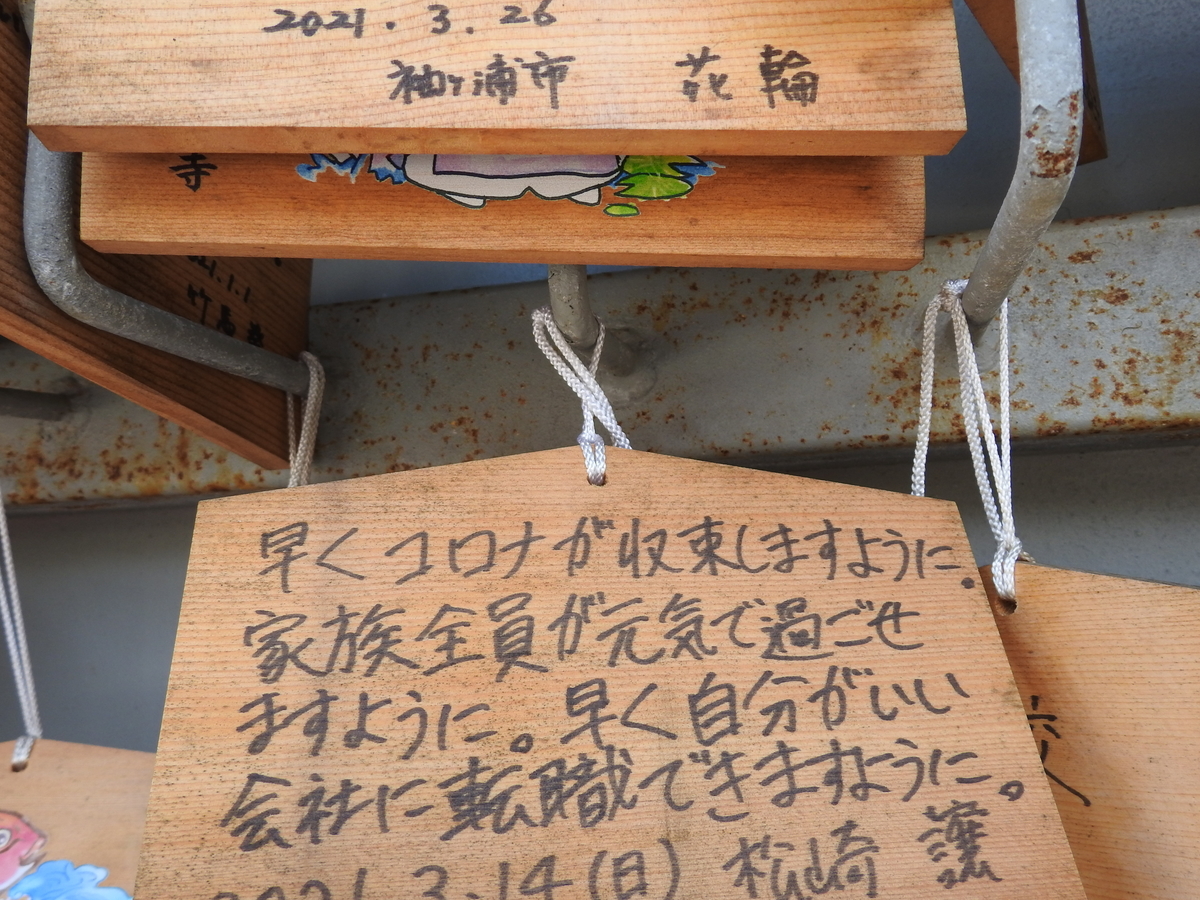 2021.3.26
袖ヶ浦市 花輪
寺
1.1
早くコロナが収束しますように。
家族全員が元気で過ごせ
ますように。早く自分がいい
会社に転職できますように。
2021.3.14(日) 松崎 譲